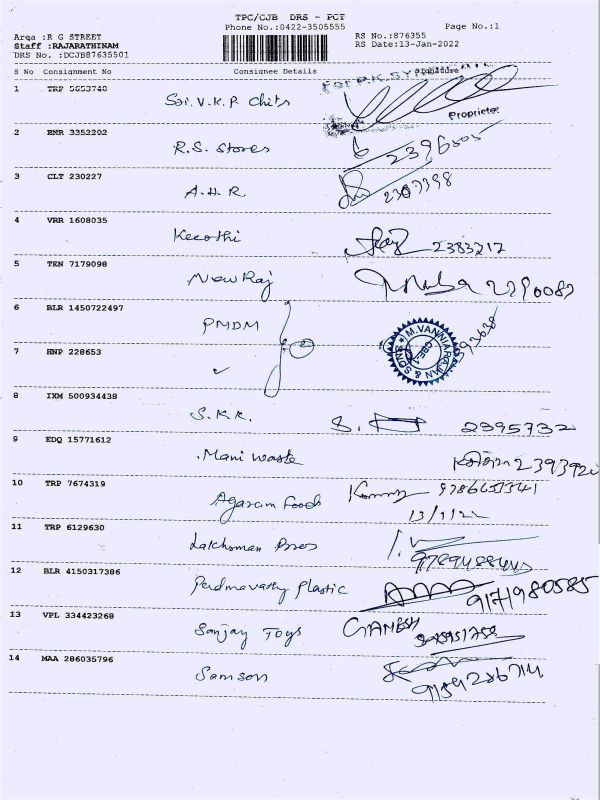 TPC/CJB DRS - PCT
Phone No.:0422-3505555
Page No.:1
Arqa :R G STREET
Staff :RAJARATHINAM
DRS No. :DCJB87635501
RS No.:876355
RS Date:13-Jan-2022
S No Consignment No Consignee Details Signature
1 TRP 5653740 Sri. V.K.P chits
Proprietor
2 BMR 3352202 R.S. Stores 2396505
3 CLT 230227 A.H.R.
4 VRR 1608035 Keerthi 2383717
5 TEN 7179098 New Raj
6 BLR 1450722497 PMDM
M. VANNIARAJAN & SONS
CBE-1
7 HNP 228653
8 IXM 500934438 S.K.R. 2395732
9 EDQ 15771612 Mani Waste
10 TRP 7674319 Agaram Foods
11 TRP 6129630 Lakshman Bros
12 BLR 4150317386 Padmavathy Plastic 9171980585
13 VPL 334423268 Sanjay Toys GANESH
14 MAA 286035796 Samson